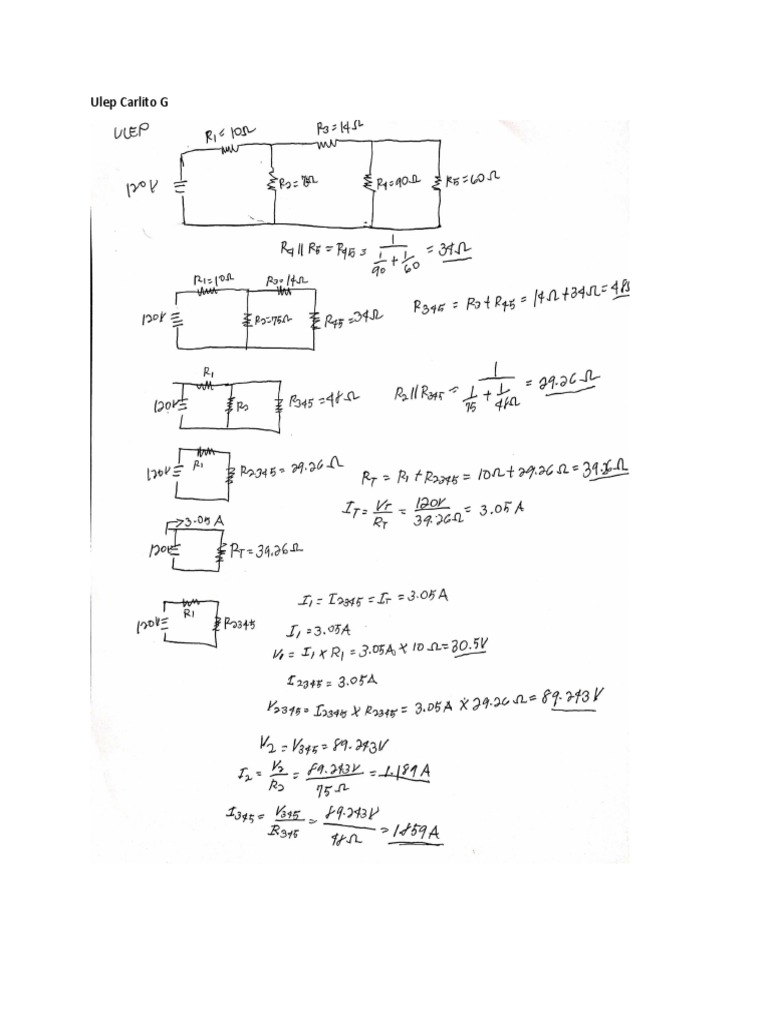 Ulep Carlito G
ULEP
R1=10Ω
R3=14Ω
120V
R2=75Ω
R4=90Ω
R5=60Ω
R4//R5 = R45 = 1/(1/90 + 1/60) = 34Ω
R1=10Ω
R3=14Ω
120V
R2=75Ω
R45=34Ω
R345 = R3+R45 = 14Ω+34Ω=48
R1
120V
R2
R345=48Ω
R2//R345 = 1/(1/75 + 1/48Ω) = 29.26Ω
120V
R1
R2345=29.26Ω
RT = R1+R2345 = 10Ω+29.26Ω=39.26Ω
IT = VT/RT = 120V/39.26Ω = 3.05A
3.05A
120V
RT=39.26Ω
120V
R1
R2345
I1=I2345=IT=3.05A
I1=3.05A
V1=I1×R1=3.05A×10Ω=30.5V
I2345=3.05A
V2345=I2345×R2345=3.05A×29.26Ω=89.243V
V2=V345=89.243V
I2=V2/R2=89.243V/75Ω=1.189A
I345=V345/R345=89.243V/48Ω=1859A